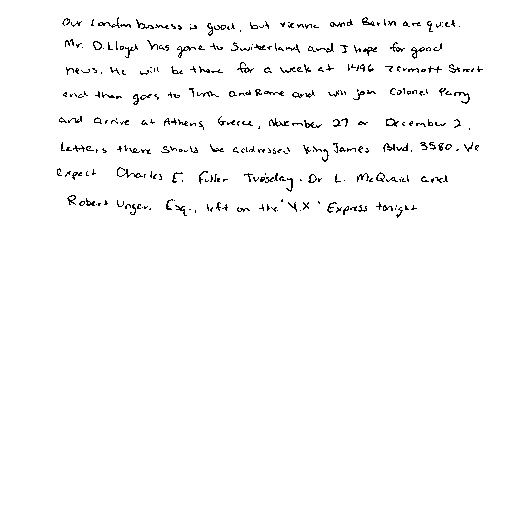 Our London business is good, but Vienna and Berlin are quiet.
Mr. D. Lloyd has gone to Switzerland and I hope for good
news. He will be there for a week at 1496 Zermott Street
and then goes to Turin and Rome and will join Colonel Parry
and arrive at Athens, Greece, November 27 or December 2.
Letters there should be addressed King James Blvd. 3580. We
expect Charles E. Fuller Tuesday. Dr L. McQuaid and
Robert Unger, Esq., left on the "Y.X" Express tonight